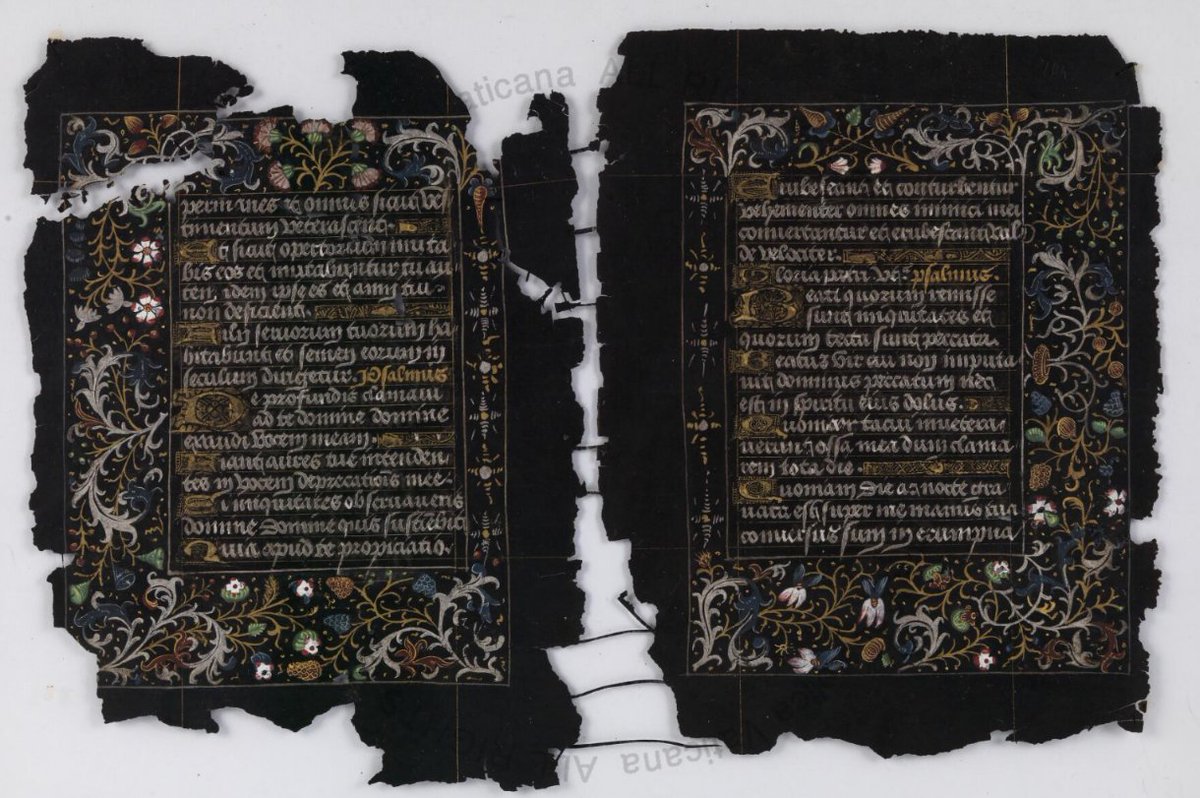 permanes et omnes sicut ves
timentum veterascent.
Et sicut opertorium muta
bis eos et mutabuntur tu au
tem idem ipse es et anni tui
non deficient.
Filij seruorum tuorum ha
bitabunt et semen eorum in
seculum dirigetur. Psalmus
De profundis clamaui
ad te domine domine
exaudi vocem meam.
Fiant aures tue intenden
tes in vocem deprecatiōis mee
Si iniquitates obseruaueris
domine domine quis sustinebit
Quia apud te propiciatio
Erubescant et conturbentur
vehementer omnes inimici mei
conuertantur et erubescant val
de velociter.
Gloria patri psalmus.
Beati quorum remisse
sunt iniquitates et
quorum tecta sunt peccata
Beatus vir cui non imputa
uit dominus peccatum nec
est in spiritu eius dolus.
Quoniam tacui inuetera
uerunt ossa mea dum clama
rem tota die.
Quoniam die ac nocte gra
uata est super me manus tua
conuersus sum in erumpna
aticana
ticana